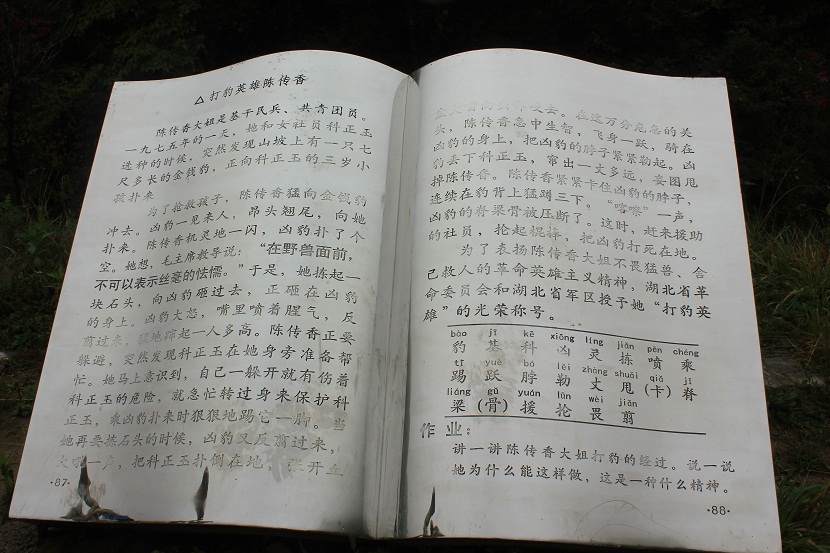 △打豹英雄陈传香
陈传香大姐是基干民兵、共青团员。
一九七五年的一天，她和女社员科正玉
选种的时候，突然发现山坡上有一只七
尺多长的金钱豹，正向科正玉的三岁小
孩扑来。
为了抢救孩子，陈传香猛向金钱豹
冲去。凶豹一见来人，昂头翘尾，向她
扑来。陈传香机灵地一闪，凶豹扑了个
空。她想，毛主席教导说：“在野兽面前，
不可以表示丝毫的怯懦。”于是，她拣起一
块石头，向凶豹砸过去，正砸在凶豹
的身上。凶豹大怒，嘴里喷着腥气，反
扑过来，猛地蹿起一人多高。陈传香正要
躲避，突然发现科正玉在她身旁准备帮
忙。她马上意识到，自己一躲开就有伤着
科正玉的危险，就急忙转过身来保护科
正玉，乘凶豹扑来时狠狠地踢它一脚。当
她再要拣石头的时候，凶豹又反翦过来，
一声，把科正玉扑倒在地，张开血
·87·
去。在这万分危急的关
头，陈传香急中生智，飞身一跃，骑在
凶豹的身上，把凶豹的脖子紧紧勒起。凶
豹丢下科正玉，窜出一丈多远，妄图甩
掉陈传香。陈传香紧紧卡住凶豹的脖子，
连续在豹背上猛蹲三下。“喀嚓”一声，
凶豹的脊梁骨被压断了。这时，赶来援助
的社员，抡起棍棒，把凶豹打死在地。
为了表扬陈传香大姐不畏猛兽、舍
己救人的革命英雄主义精神，湖北省革
命委员会和湖北省军区授予她“打豹英
雄”的光荣称号。
bào jī kē xiōng líng jiǎn pēn chéng
豹 基 科 凶 灵 拣 喷 乘
tī yuè bó lēi zhàng shuǎi qiǎ jǐ
踢 跃 脖 勒 丈 甩 (卡) 脊
liáng gǔ yuán lūn wèi jiǎn
梁 (骨) 援 抡 畏 翦
作业：
讲一讲陈传香大姐打豹的经过。说一说
她为什么能这样做，这是一种什么精神。
·88·